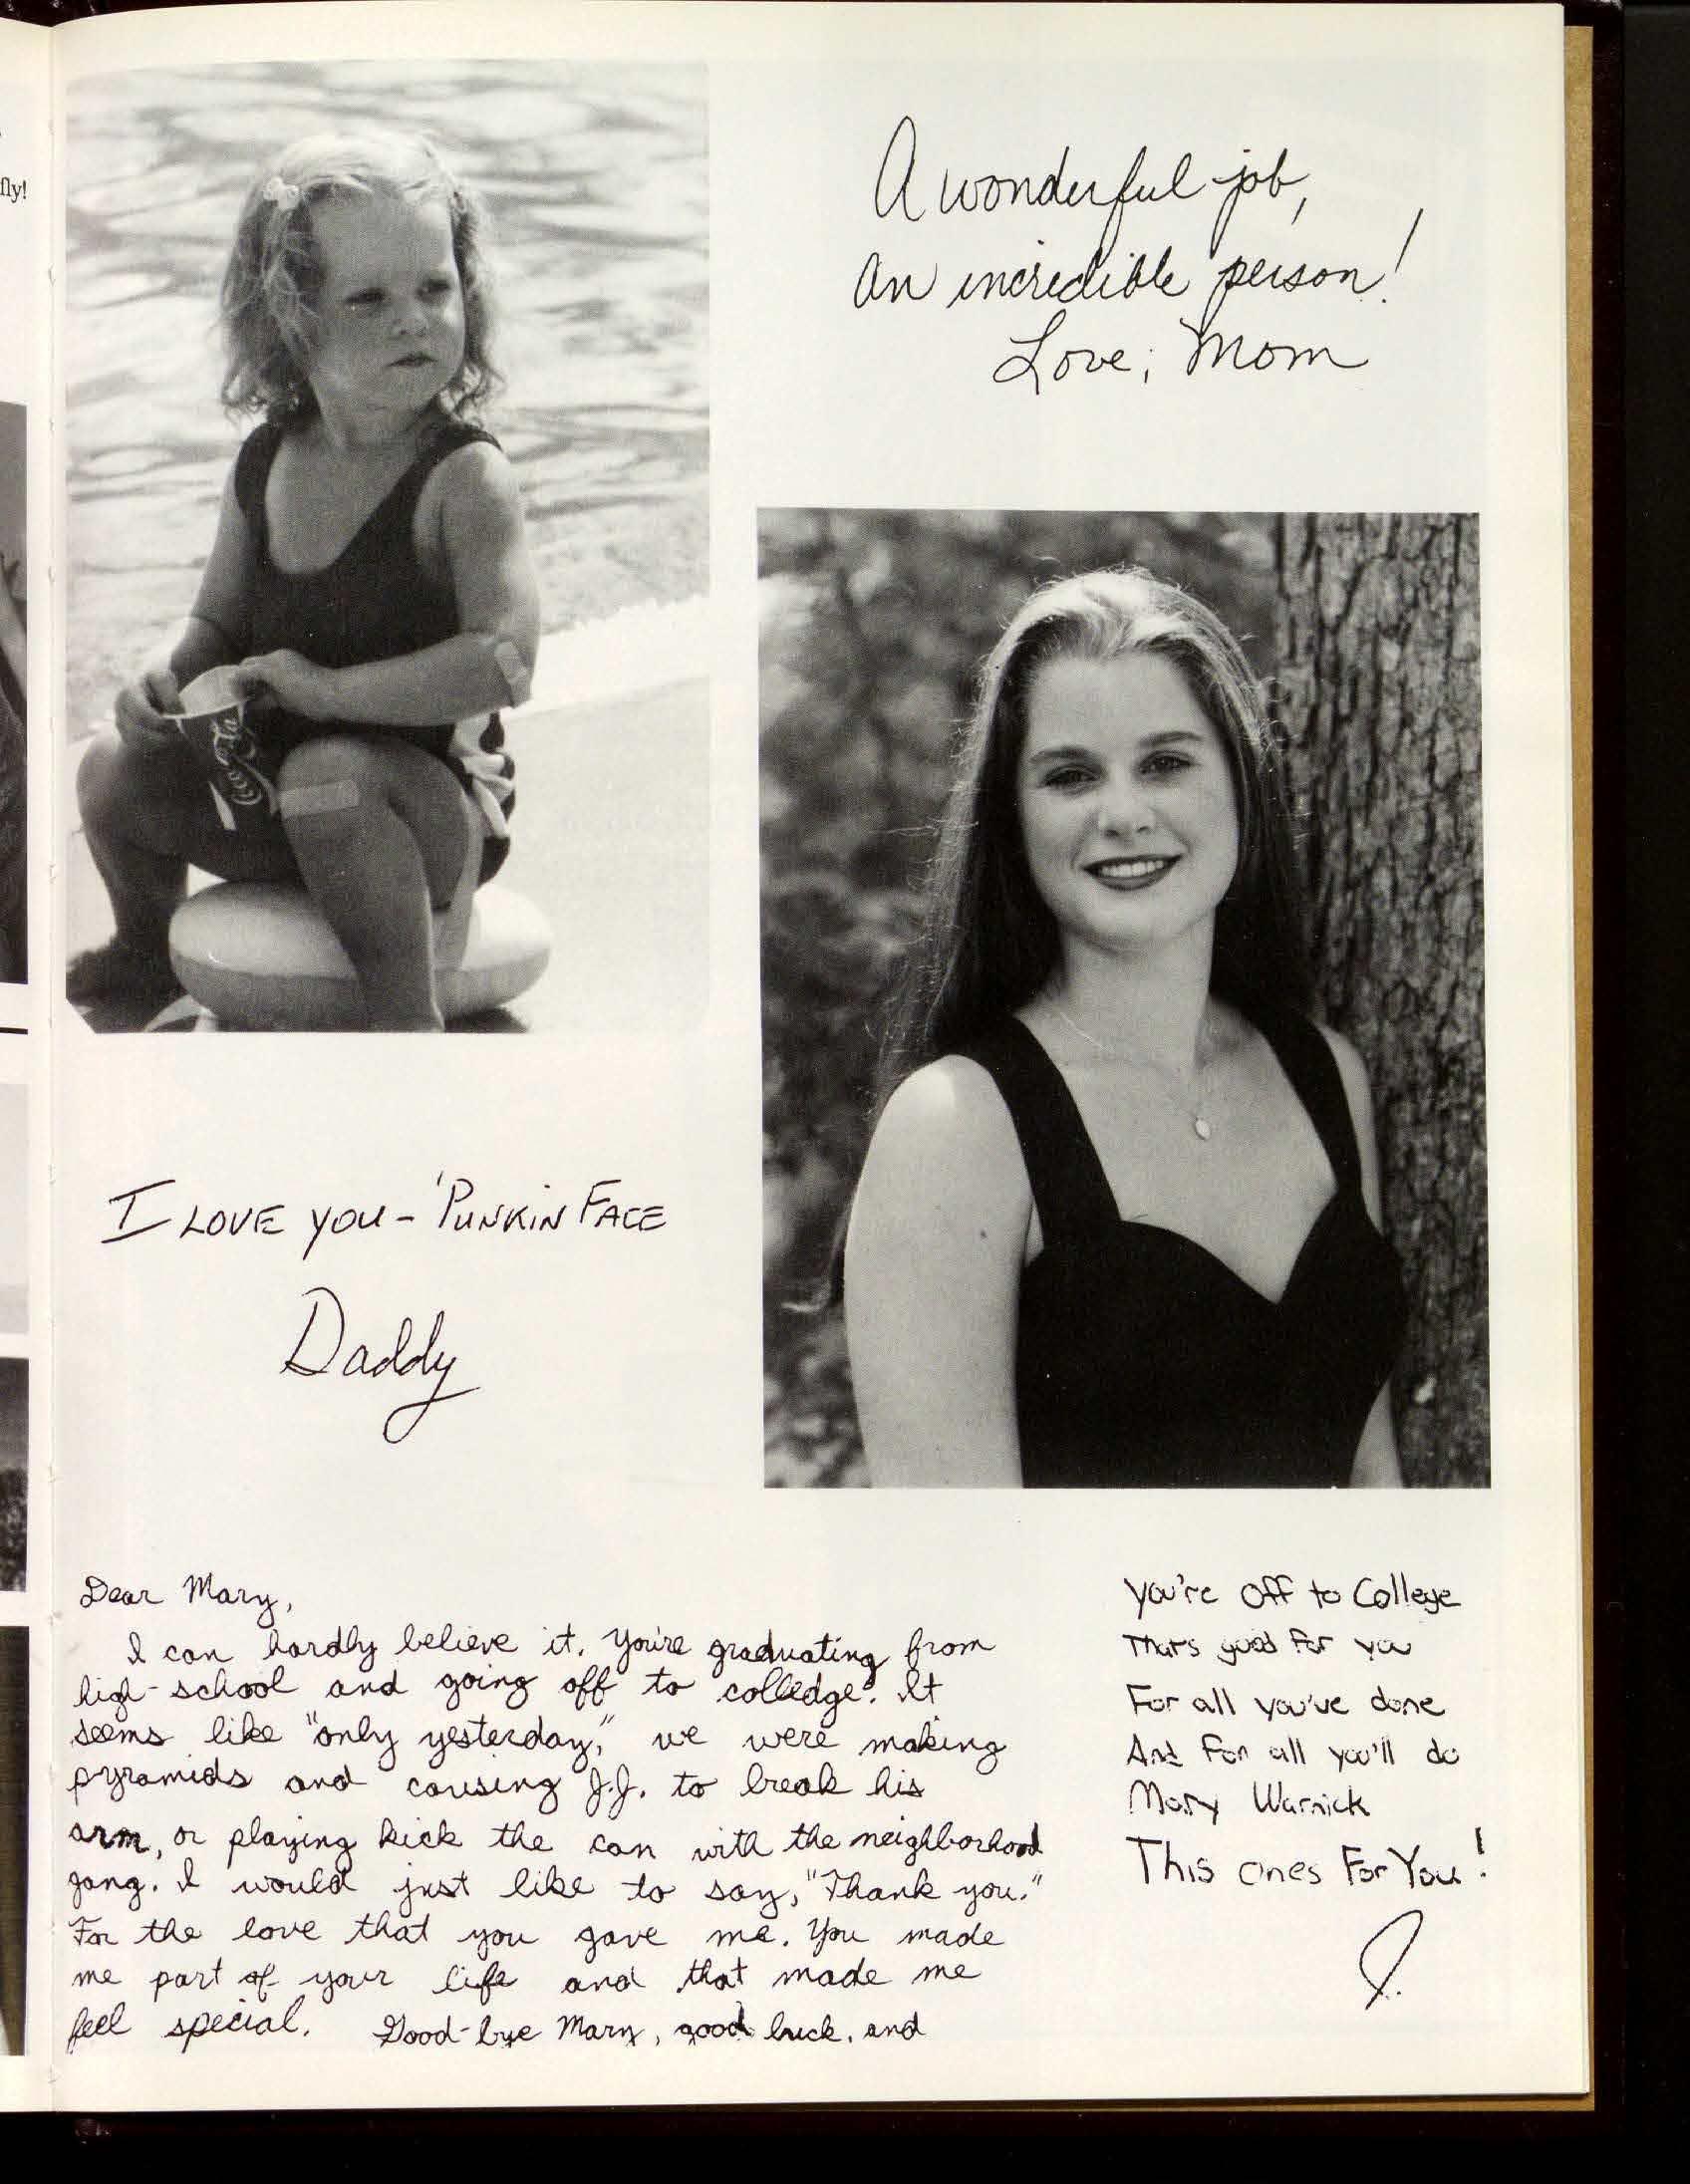 fly!
A wonderful job,
An incredible person!
Love, Mom
Coca-Cola
I LOVE YOU - 'PUNKIN FACE
Daddy
Dear Mary,
I can hardly believe it. You're graduating from
high-school and going off to colledge! It
seems like "only yesterday," we were making
pyramids and causing J.J. to break his
arm, or playing kick the can with the neighborhood
gang. I would just like to say, "Thank you."
For the love that you gave me. You made
me part of your life and that made me
feel special. Good-bye Mary, good luck, and
You're Off to College
That's good For you
For all you've done
And For all you'll do
Mary Warnick
This ones For You!
J.